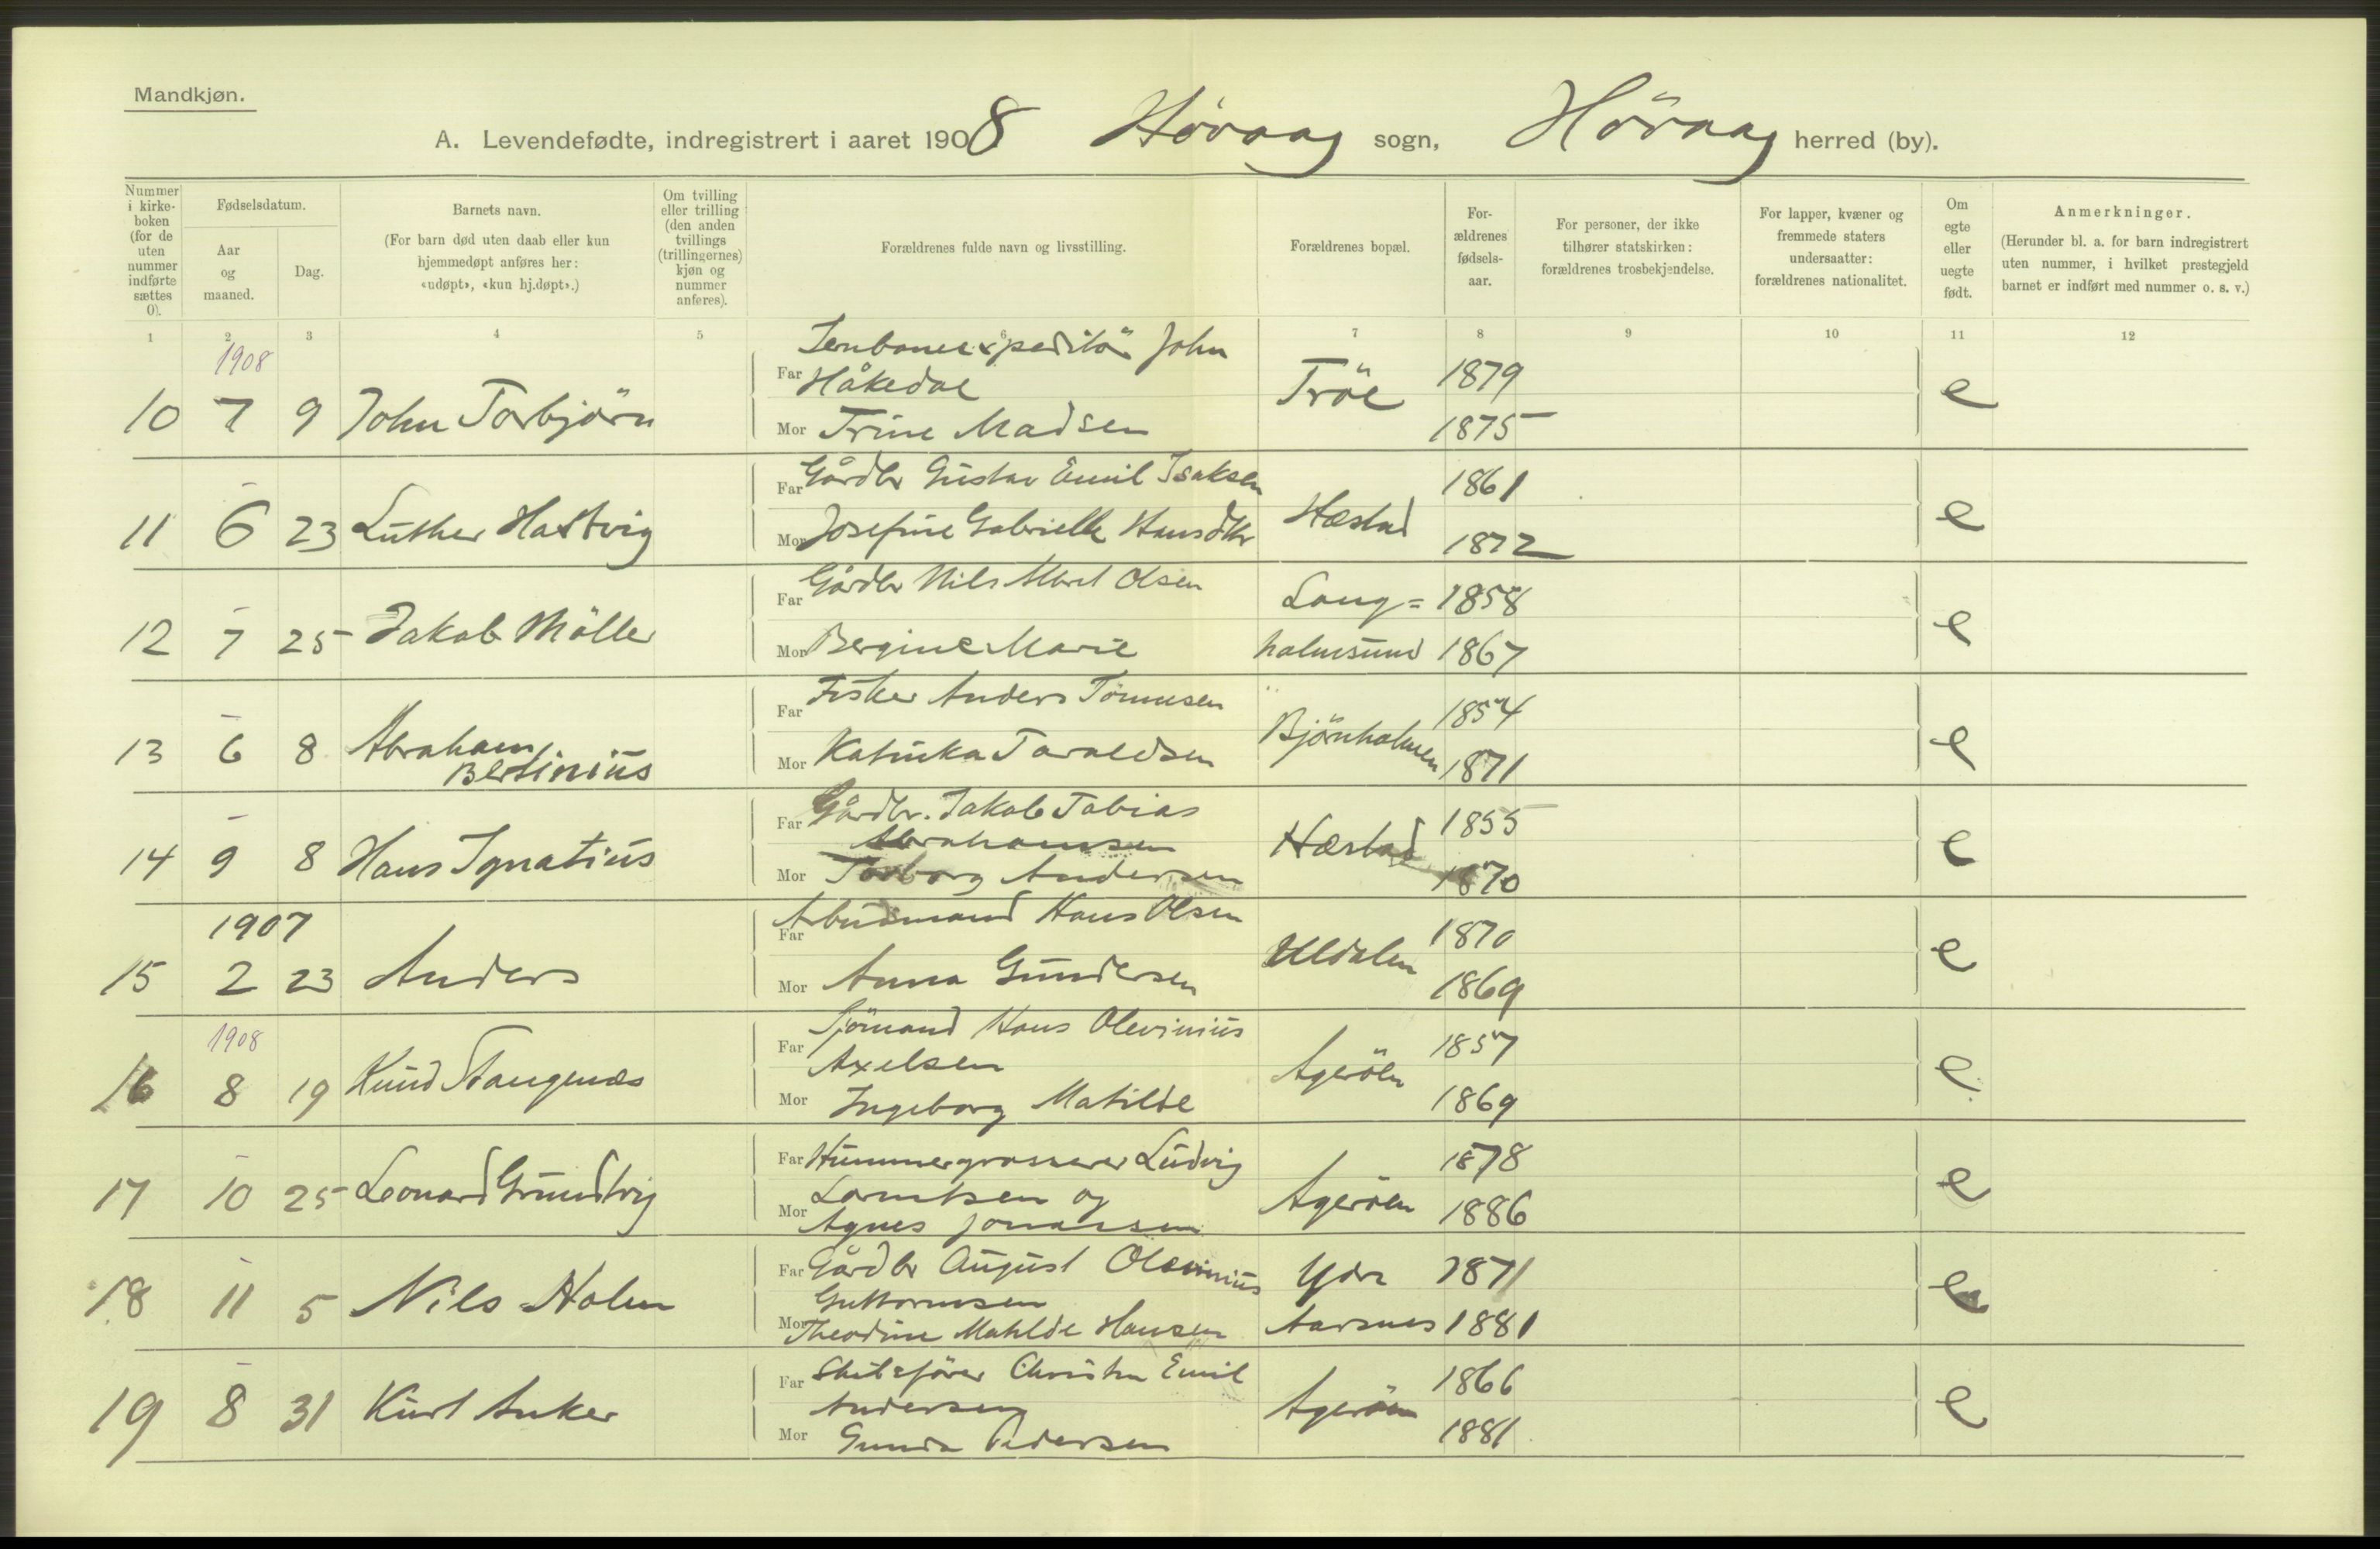 Mandkjøn.
A. Levendefødte, indregistrert i aaret 1908 Høvaag sogn, Høvaag herred (by).
Nummer i kirke-boken (for de uten nummer indførte sættes 0).
Fødselsdatum.
Aar og maaned.
Dag.
Barnets navn.
(For barn død uten daab eller kun hjemmedøpt anføres her: «udøpt», «kun hj.døpt».)
Om tvilling eller trilling (den anden tvillings (trillingernes) kjøn og nummer anføres).
Forældrenes fulde navn og livsstilling.
Forældrenes bopæl.
For-ældrenes fødsels-aar.
For personer, der ikke tilhører statskirken: forældrenes trosbekjendelse.
For lapper, kvæner og fremmede staters undersaatter: forældrenes nationalitet.
Om egte eller uegte født.
Anmerkninger.
(Herunder bl. a. for barn indregistrert uten nummer, i hvilket prestegjeld barnet er indført med nummer o. s. v.)
1 2 3 4 5 6 7 8 9 10 11 12
1908
10 7 9 John Torbjörn
Far Jernbaneexpeditör John
Håkedal
Mor Trine Madsen
Tröe 1879
1875
e
11 – 6 23 Luther Hartvig
Far Gårdbr Gustav Emil Isaksen
Mor Josefine Gabrielle Hansdtr
Hæstad 1861
1872
e
12 – 7 25 Jakob Möller
Far Gårdbr Nils Olsen
Mor Bergine Marie
Lang= 1858
holmsund 1867
e
13 – 6 8 Abraham
Bertinius
Far Fisker Anders Tönnesen
Mor Katinka Taraldsen
Björnholmen 1854
1871
e
14 – 9 8 Hans Ignatius
Far Gårdbr. Jakob Tobias
Abrahamsen
Mor Torborg Andersen
Hæstad 1855
1870
e
1907
15 2 23 Anders
Far Arbeidsmand Hans Olsen
Mor Anna Gundersen
Uldalen 1870
1869
e
1908
16 8 19 Knud Stangenæs
Far Sjömand Hans Olevinius
Axelsen
Mor Ingeborg Matilde
Ageröen 1857
1869
e
17 – 10 25 Leonard Grundtvig
Far Hummergrosserer Ludvig
Mor Lorentsen og
Agnes Johansen
Ageröen 1878
1886
e
18 – 11 5 Nils Holm
Far Gårdbr August Olevinius
Guttormsen
Mor Theodine Mathilde Hansen
Ydre 1871
Aarsnes 1881
e
19 – 8 31 Kurt Anker
Far Skibsförer Christen Emil
Andersen
Mor Gunda Pedersen
Ageröen 1866
1881
e